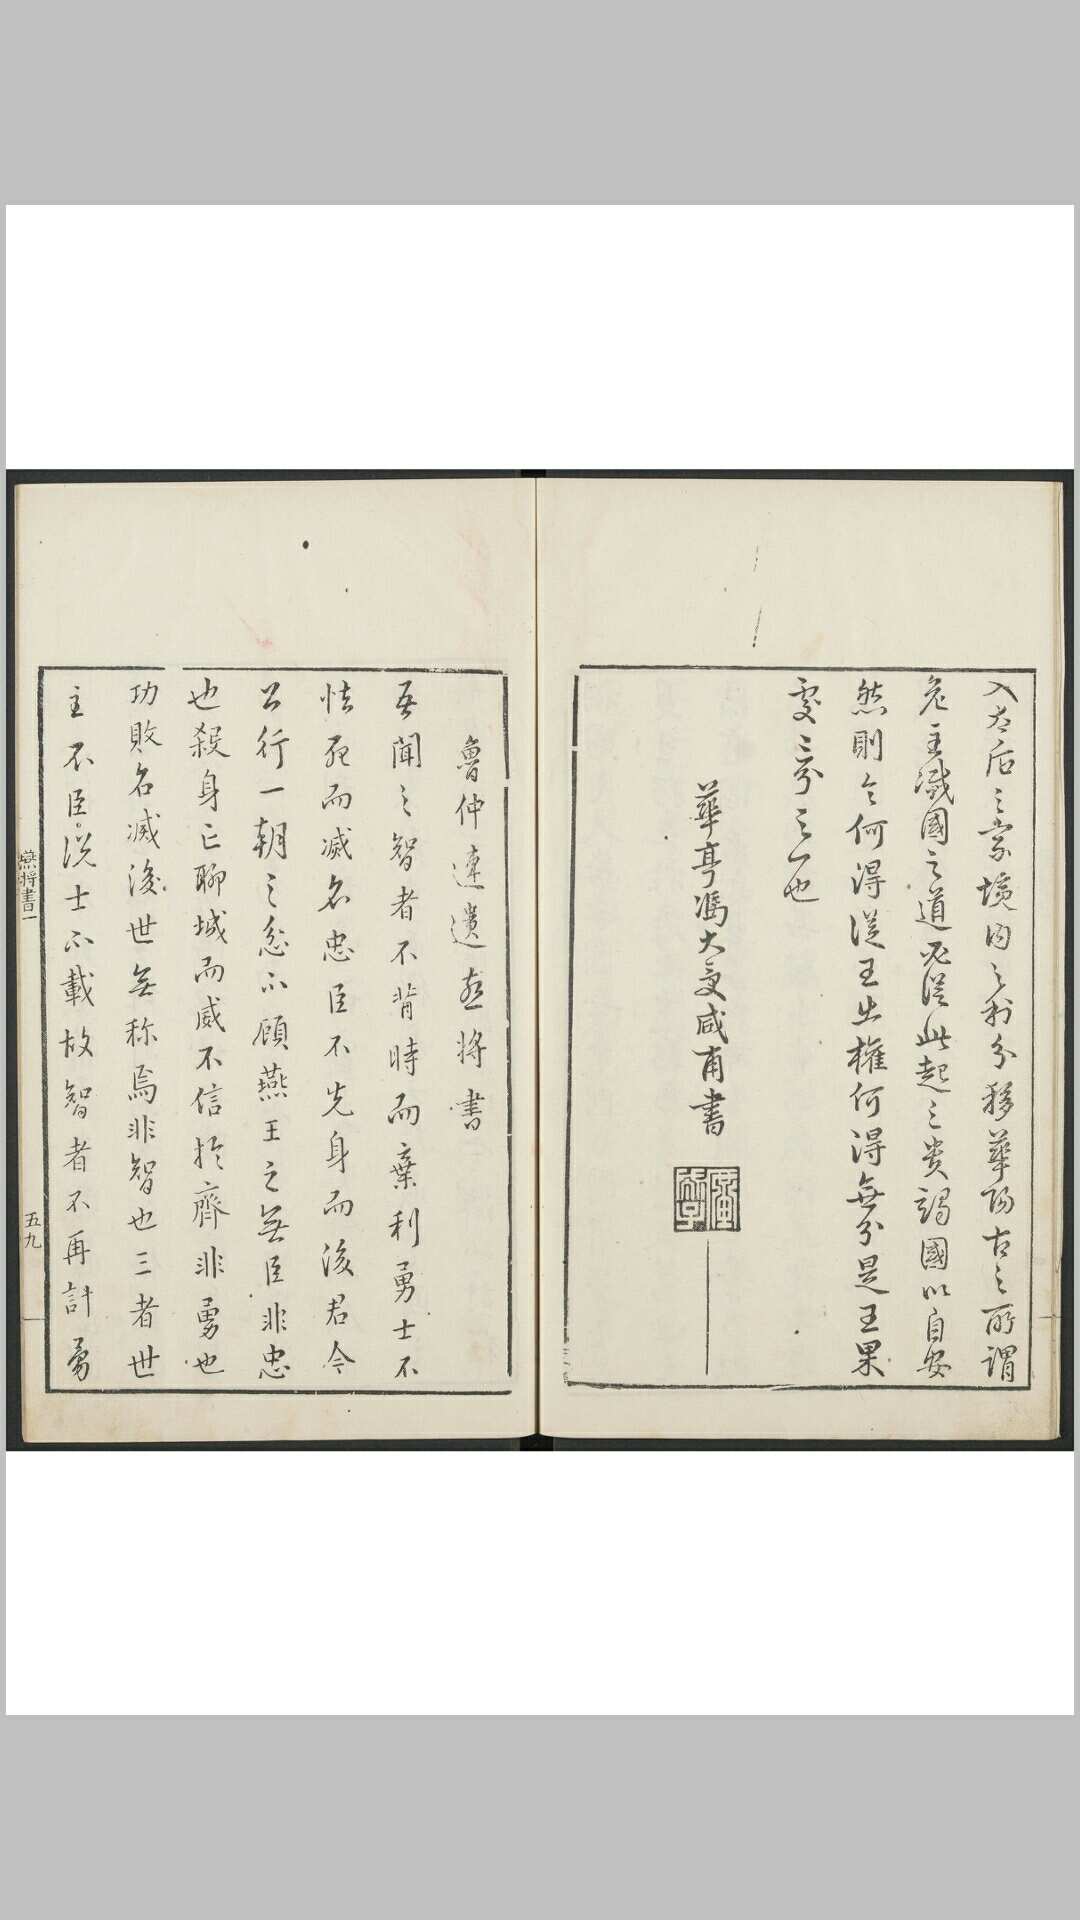 入太后之家境内之利分移華陽古之所謂
危主滅國之道必從此起三貴竭國以自安
然則令何得從王出權何得無分是王果
處三分之一也
華亭馮大受咸甫書
魯仲連遺燕將書
吾聞之智者不背時而棄利勇士不
怯死而滅名忠臣不先身而後君今
公行一朝之忿不顧燕王之無臣非忠
也殺身亡聊城而威不信於齊非勇也
功敗名滅後世無称焉非智也三者世
主不臣説士不載故智者不再計勇
燕将書一
五九